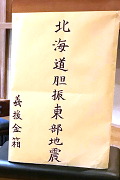 北海道胆振東部地震
義援金箱